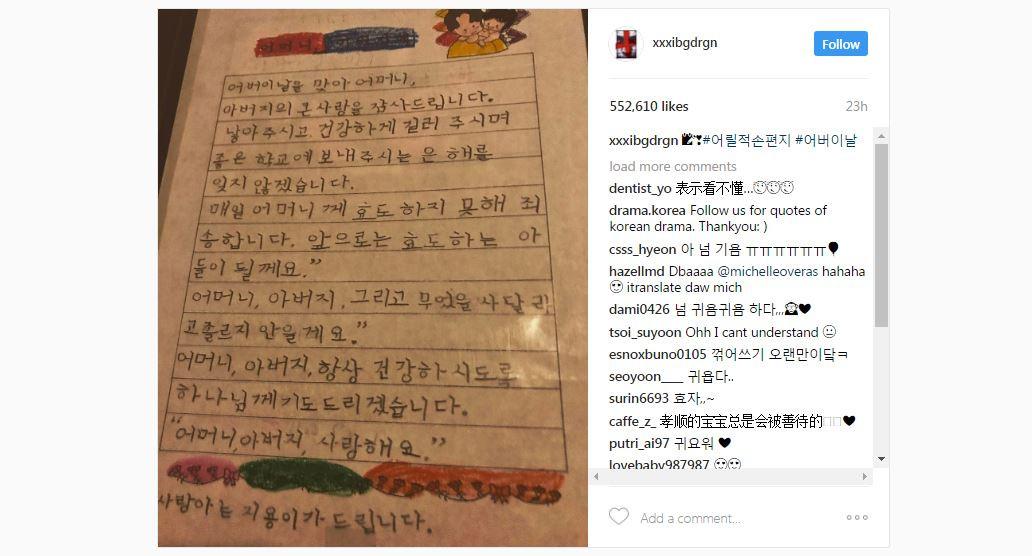 어머니,
어버이날을 맞아 어머니,
아버지의 큰사랑을 감사드립니다.
낳아주시고 건강하게 길러 주시며
좋은 학교에 보내주시는 은혜를
잊지 않겠습니다.
매일 어머니께 효도하지 못해 죄
송합니다. 앞으로는 효도하는 아
들이 될께요."
어머니, 아버지, 그리고 무엇을 사달라
고졸르지 안을게요."
어머니, 아버지, 항상 건강하시도록
하나님께기도드리겠습니다.
"어머니,아버지, 사랑해요."
지용이가 드립니다.
xxxibgdrgn
Follow
552,610 likes
23h
xxxibgdrgn #어릴적손편지 #어버이날
load more comments
dentist_yo 表示看不懂...
drama.korea Follow us for quotes of
korean drama. Thankyou: )
csss_hyeon 아 넘 기욤 ㅠㅠㅠㅠㅠㅠ
hazellmd Dbaaaa @michelleoveras hahaha
itranslate daw mich
dami0426 넘 귀음귀음 하다,,,
tsoi_suyoon Ohh I cant understand
esnoxbuno0105 꺾어쓰기 오랜만이닼ㅋ
seoyoon___ 귀욥다..
surin6693 효자,,~
caffe_z_ 孝顺的宝宝总是会被善待的
putri_ai97 귀요워
lovebaby987987
Add a comment...